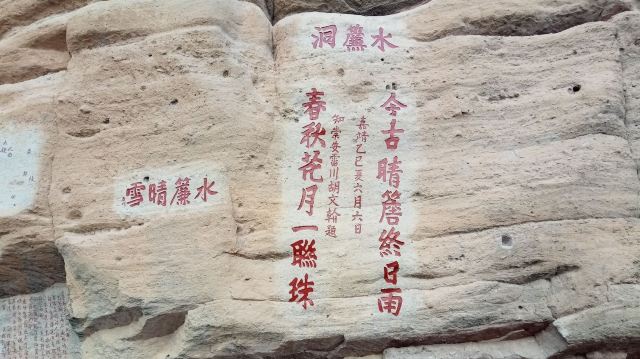 水簾洞
今古晴簷終日雨
嘉靖乙巳夏六月六日
知崇安雷川胡文翰題
春秋花月一聯珠
水簾晴雪